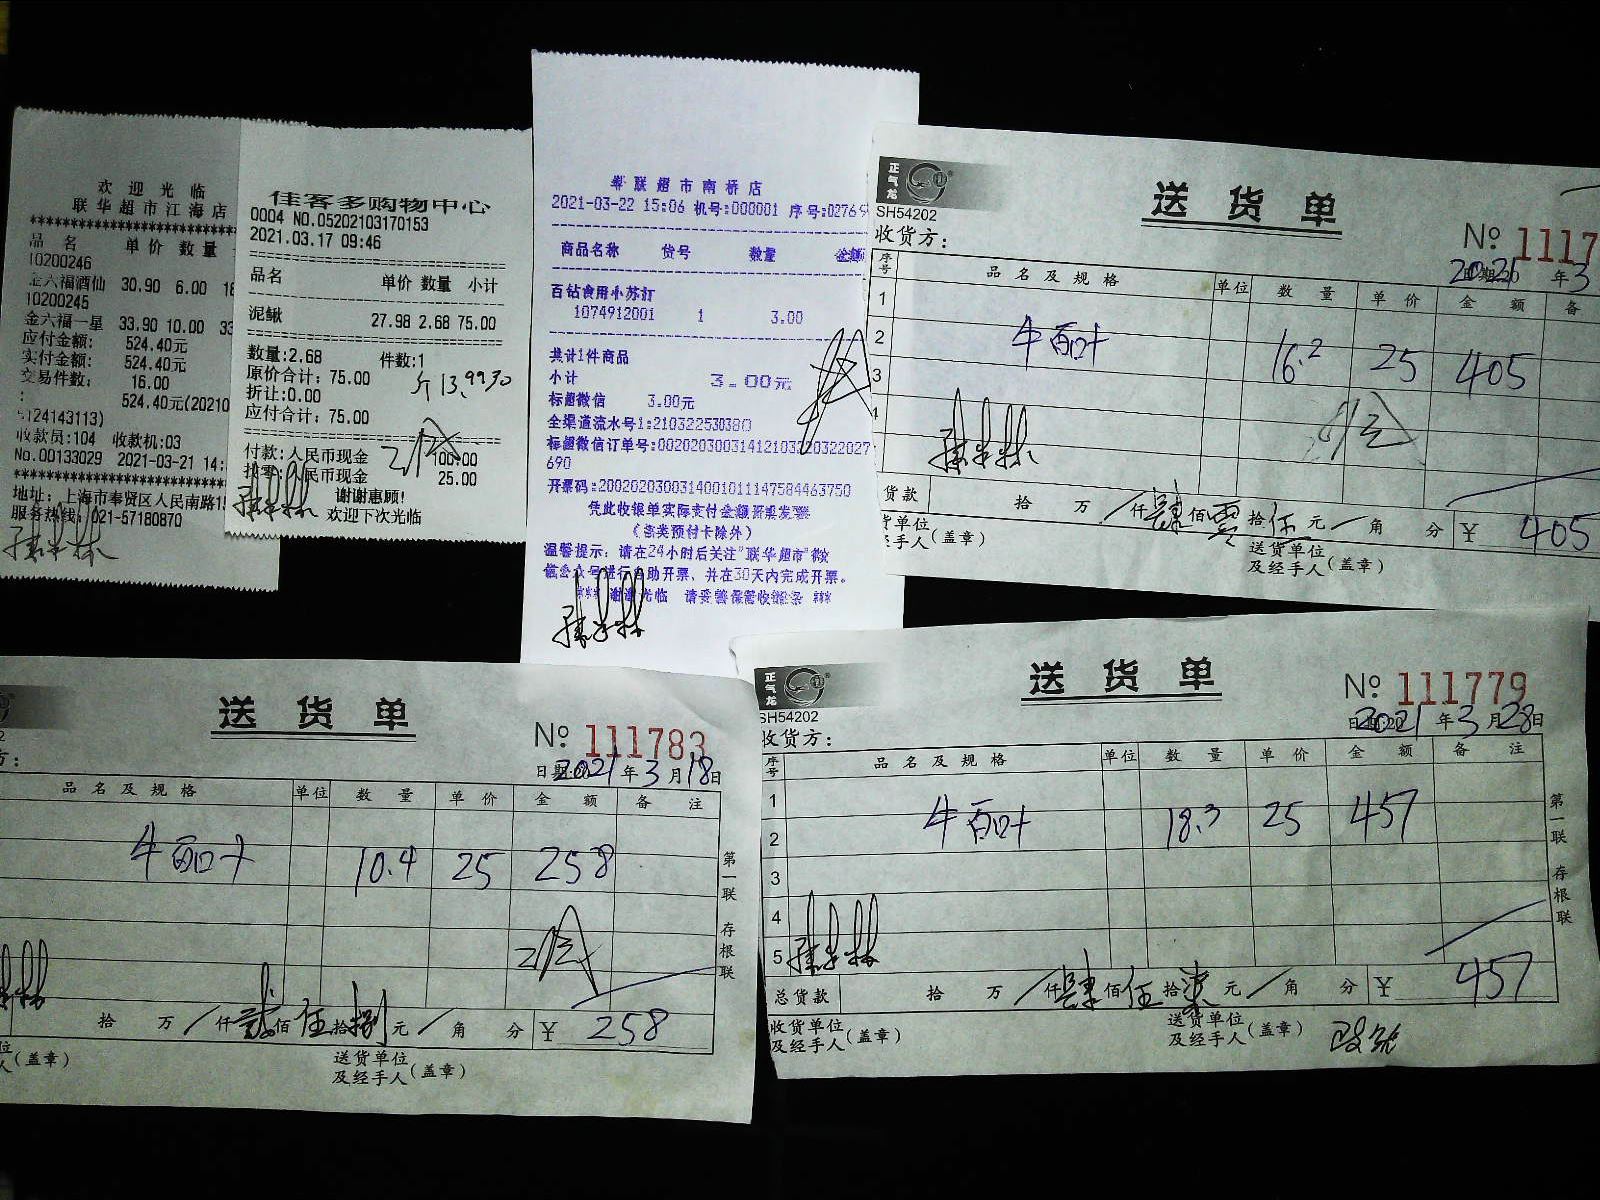 欢迎光临
联华超市江海店
********************
品名 单价 数量
10200246
金六福酒仙 30.90 6.00
10200245
金六福一星 33.90 10.00 33
应付金额: 524.40元
实付金额: 524.40元
交易件数: 16.00
: 524.40元(20210
124143113)
收款员:104 收款机:03
No.00133029 2021-03-21 14:
********************
地址: 上海市奉贤区人民南路
服务热线: 021-57180870
佳客多购物中心
0004 NO.05202103170153
2021.03.17 09:46
品名 单价 数量 小计
泥鳅
27.98 2.68 75.00
数量:2.68 件数:1
原价合计: 75.00
斤 13.99 30
折让:0.00
应付合计: 75.00
付款:人民币现金 100.00
找零:人民币现金 25.00
谢谢惠顾!
欢迎下次光临
华联超市南桥店
2021-03-22 15:06 机号:000001 序号:0276
商品名称 货号 数量 金额
百钻食用小苏打
1074912001 1 3.00
共计1件商品
小计 3.00元
标超微信 3.00元
全渠道流水号1:210322530380
标超微信订单号:0020203003141210322032202
690
开票码:2002020300314001011147584463750
凭此收银单实际支付金额开具发票
(各类预付卡除外)
温馨提示: 请在24小时后关注"联华超市"微
信公众号进行自助开票, 并在30天内完成开票。
*** 谢谢光临 请妥善保管收银条 ***
正气龙
SH54202
送货单
收货方:
№ 1117
2021年3
序号 品名及规格 单位 数量 单价 金额 备
1
2 牛百叶 16.2 25 405
3
4
货款 拾 万 / 仟 肆 佰 零 拾 伍 元 / 角 分 ¥ 405
货单位
经手人 (盖章)
送货单位
及经手人 (盖章)
送货单
№ 111783
日期:2021年3月18日
方:
品名及规格 单位 数量 单价 金额 备注
牛百叶 10.4 25 258
拾 万 / 仟 贰 佰 伍 拾 捌 元 / 角 分 ¥ 258
位
人 (盖章)
送货单位
及经手人 (盖章)
第一联 存根联
正气龙
SH54202
送货单
收货方:
№ 111779
日期:2021年3月28日
序号 品名及规格 单位 数量 单价 金额 备注
1
2 牛百叶 18.3 25 457
3
4
5
总货款 拾 万 / 仟 肆 佰 伍 拾 柒 元 / 角 分 ¥ 457
收货单位
及经手人 (盖章)
送货单位
及经手人 (盖章)
第一联 存根联